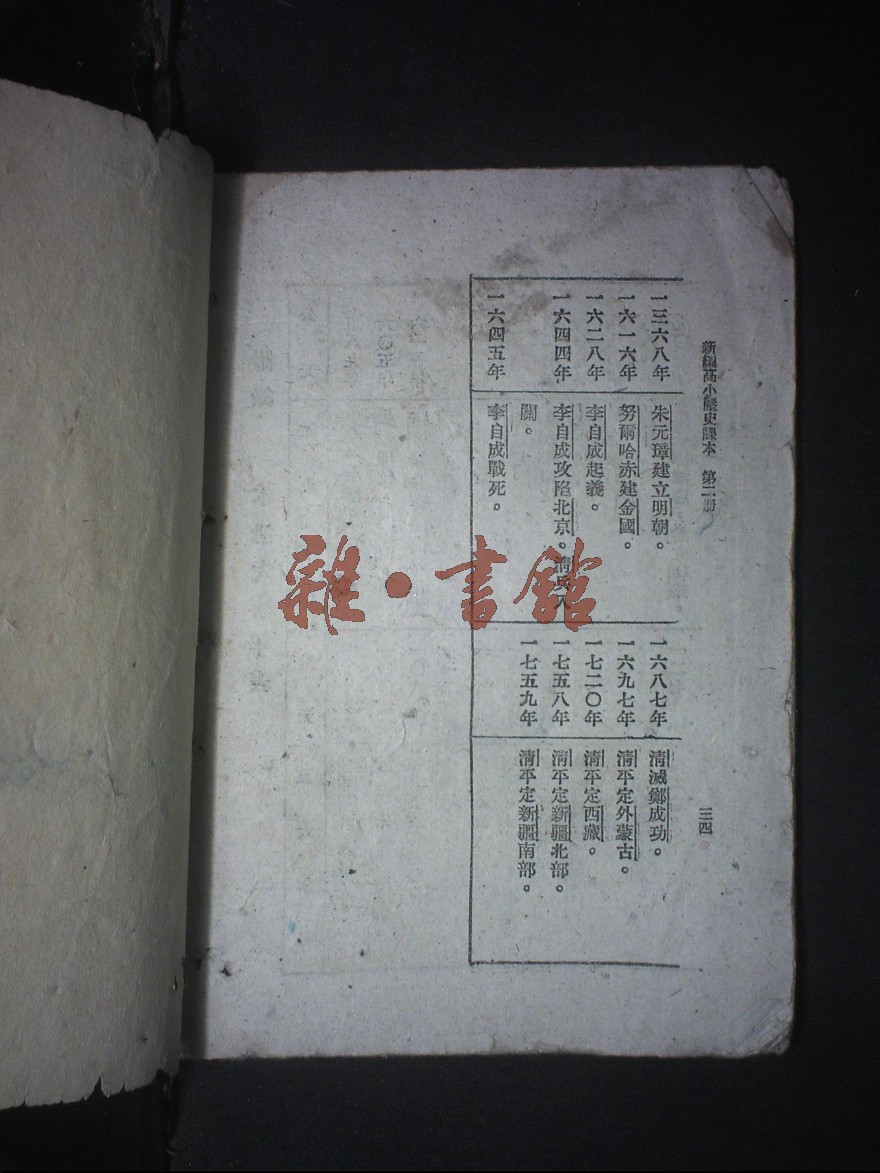 新編高小歷史課本 第二册
三四
一三六八年
朱元璋建立明朝。
一六一六年
努爾哈赤建金國。
一六二八年
李自成起義。
一六四四年
李自成攻陷北京。清兵入
關。
一六四五年
李自成戰死。
一六八七年
清滅鄭成功。
一六九七年
清平定外蒙古。
一七二〇年
清平定西藏。
一七五八年
清平定新疆北部。
一七五九年
清平定新疆南部。
雜·書館